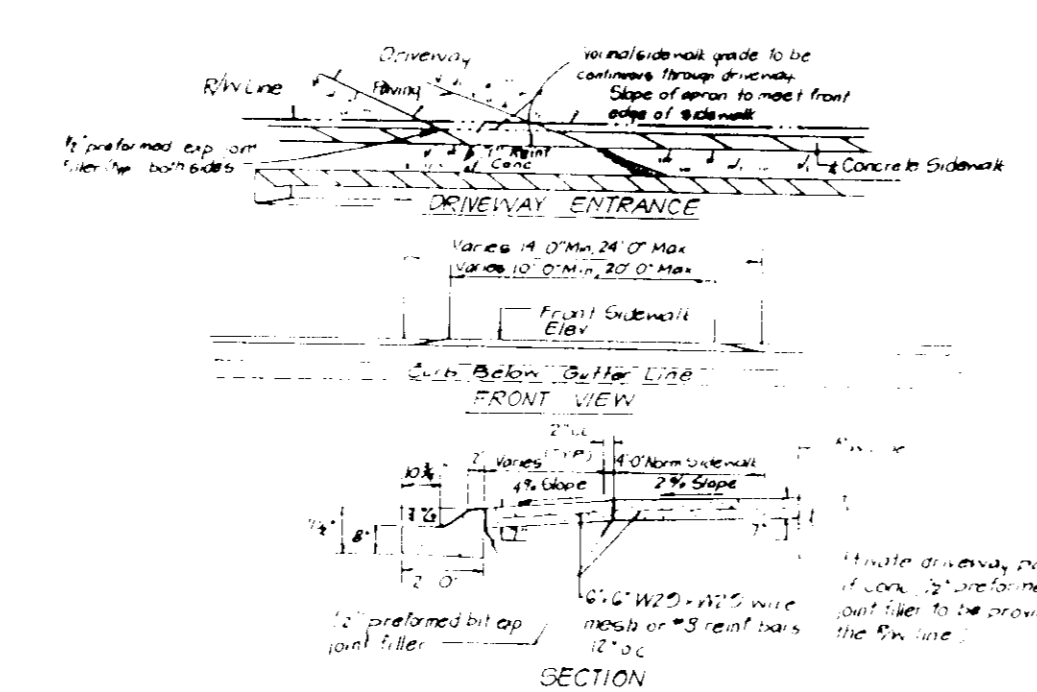 Driveway
R/W Line
Paving
Normal sidewalk grade to be
continuous through driveway
Slope of apron to meet front
edge of sidewalk
½" preformed exp joint
filler both sides
7" Reint
Conc
Concrete Sidewalk
DRIVEWAY ENTRANCE
Varies 14' 0" Min, 24' 0" Max
Varies 10' 0" Min, 20' 0" Max
Front Sidewalk
Elev
Curb Below Gutter Line
FRONT VIEW
2" CL
(TYP)
2" Varies 4'0" Norm Sidewalk
10
4% Slope 2% Slope
8"
7"
7"
2' 0"
½" preformed bit exp
joint filler
6"x6" W2.9 x W2.9 wire
mesh or #3 reint bars
12" o c
Private driveway
if conc, ½" preforme
joint filler to be provi
the R/W line
SECTION